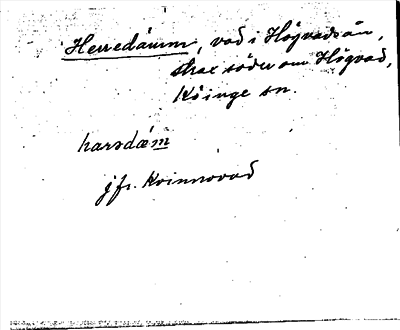 Herredämm, vad i Högvadsån,
strax söder om Högvad,
Köinge sn.
harədæm
jfr. Kvinnovad